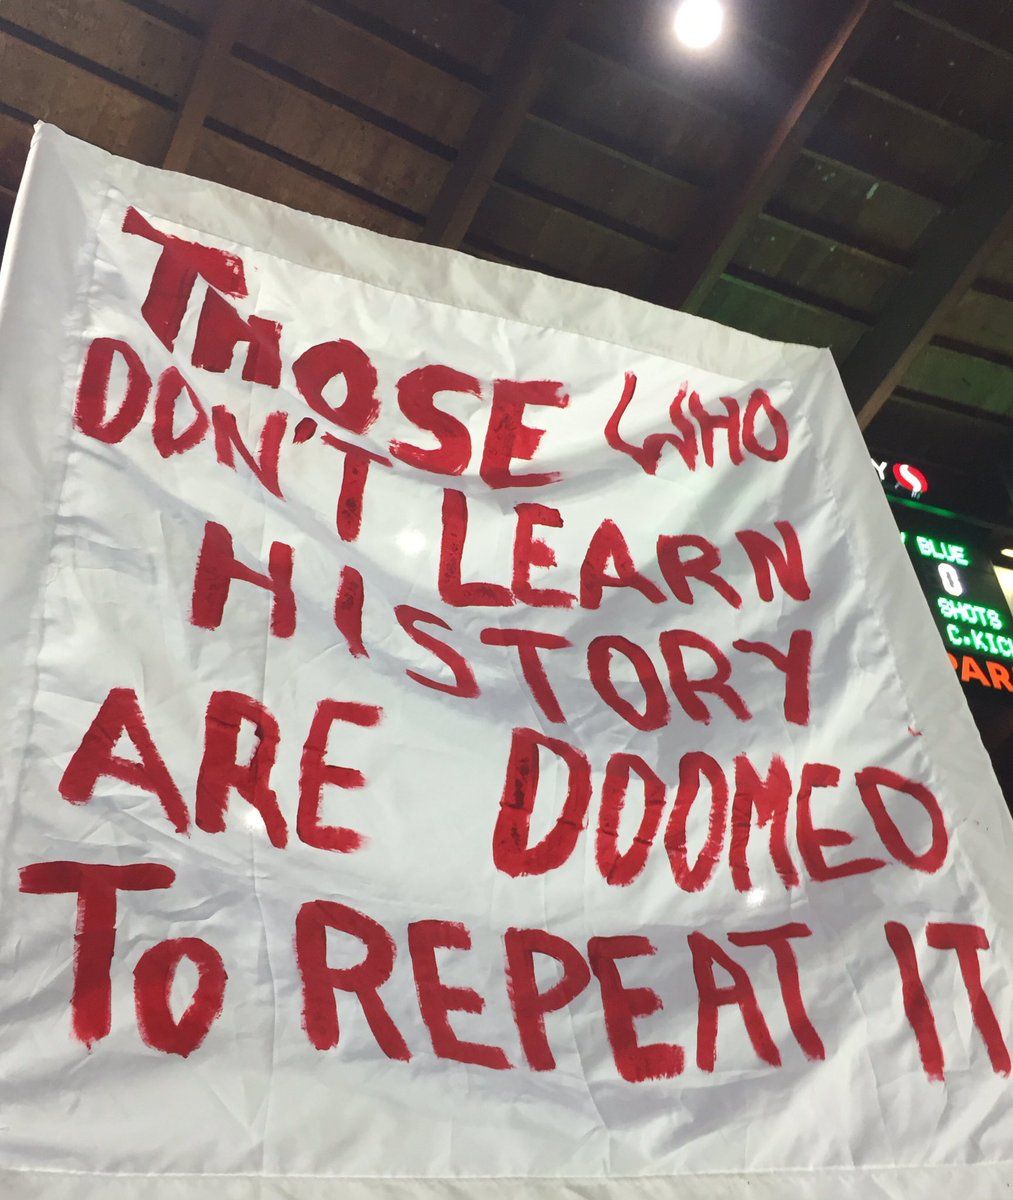 THOSE WHO
DON'T LEARN
HISTORY
ARE DOOMED
TO REPEAT IT
Y
BLUE
0
SHOTS